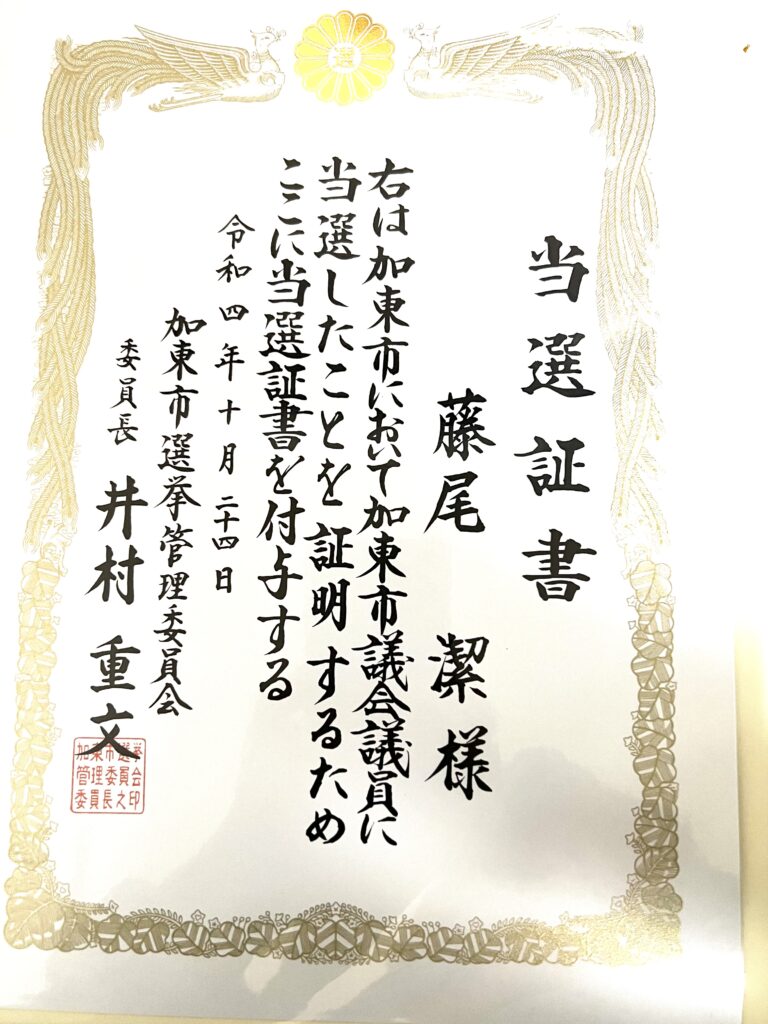 選
当選証書
藤尾 潔 様
右は加東市において加東市議会議員に
当選したことを証明するため
ここに当選証書を付与する
令和四年十月二十四日
加東市選挙管理委員会
委員長 井村 重文
加東市選挙
管理委員会
委員長之印